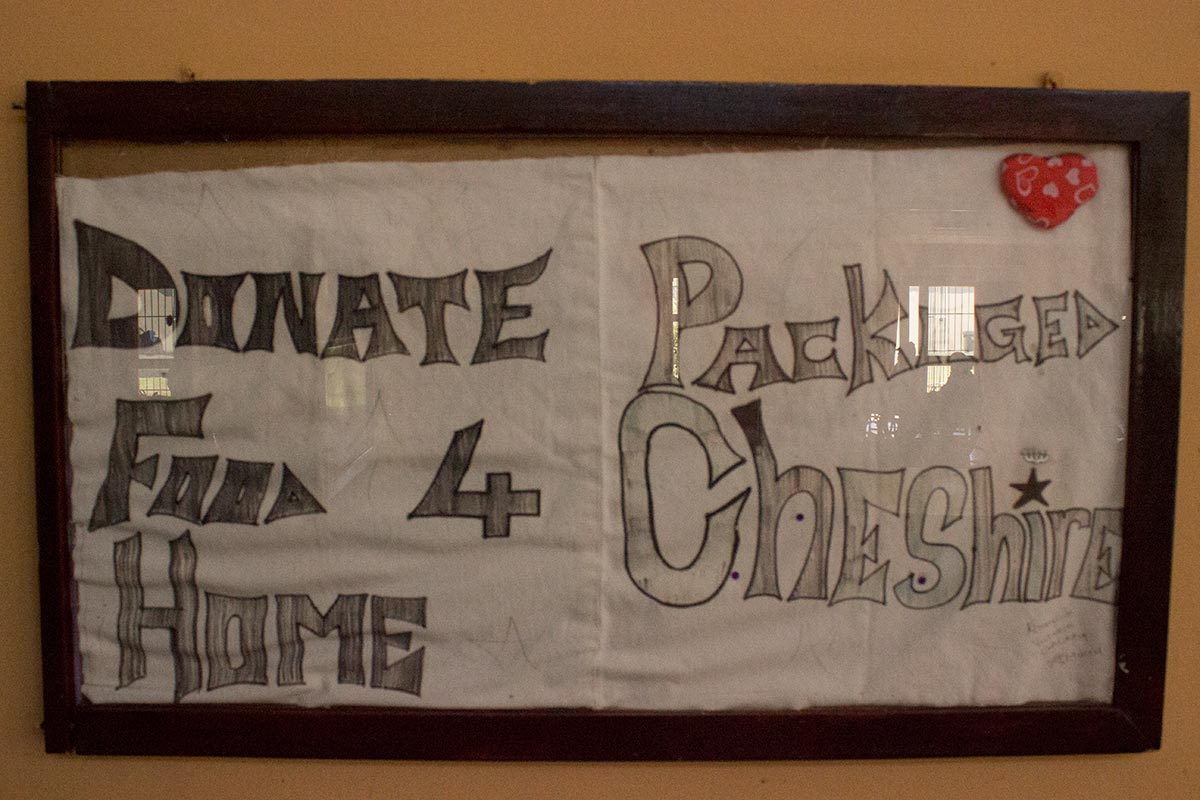 DONATE PACKAGED
FOOD 4 ChEShirE
HOME